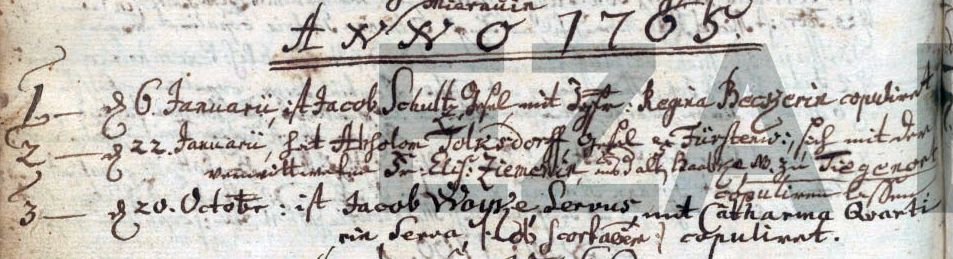 ANNO 1765.
1 — d 6 Januarii, ist Jacob Schultz Gesel mit Jgfr: Regina Beczerin copuliret
2 — d 22. Januarii, hat Absolom Tolksdorff Gesel Fürstenw:, sich mit der
Fr: Elis: Ziemerin, zu Tiegenort
copuliren lassen
3 — d 20. Octobr: ist Jacob Woyke Servus, mit Catharina Quarti
rin Serva, copuliret.
EZA